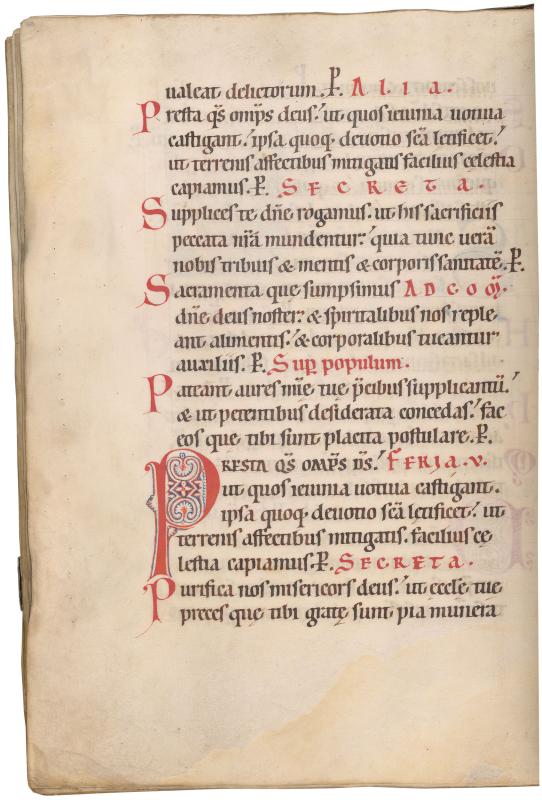 ualeat delictorum. P. ALIA.
Presta qs̄ omp̄s deus. ut quos ieiunia uotiua
castigant. ipsa quoq; deuotio sc̄a letificet.
ut terrenis affectibus mitigatis facilius celestia
capiamus. P. SECRETA.
Supplices te dn̄e rogamus. ut his sacrificiis
peccata nr̄a mundentur. quia tunc uerā
nobis tribuis & mentis & corporis sanitatē. P.
Sacramenta que sumpsimus AD COM̄.
dn̄e deus noster. & spiritalibus nos reple
ant alimentis. & corporalibus tueantur
auxiliis. P. Sup̱ populum.
Pateant aures mīe tue p̄cibus supplicantiū.
& ut petentibus desiderata concedas. fac
eos que tibi sunt placita postulare. P.
PRESTA QS̄ OMP̄S DS̄. FERIA .V.
ut quos ieiunia uotiua castigant.
ipsa quoq; deuotio sc̄a letificet. ut
terrenis affectibus mitigatis. facilius ce
lestia capiamus. P. SECRETA.
Purifica nos misericors deus. ut eccle tue
preces que tibi gratę sunt pia munera